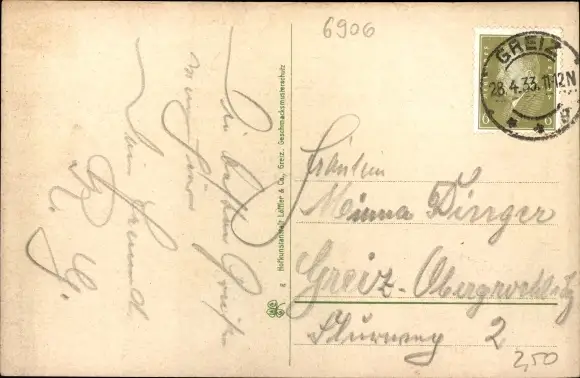 6906
GREIZ
28.4.33.11-12N
6
6
Die besten Grüße
Dein Freund
R. G.
Hofkunstanstalt Löffler & Co., Greiz. Geschmacksmusterschutz
Fräulein
Minna Dinger
Greiz-Obergrochlitz
Flurweg 2
2,50